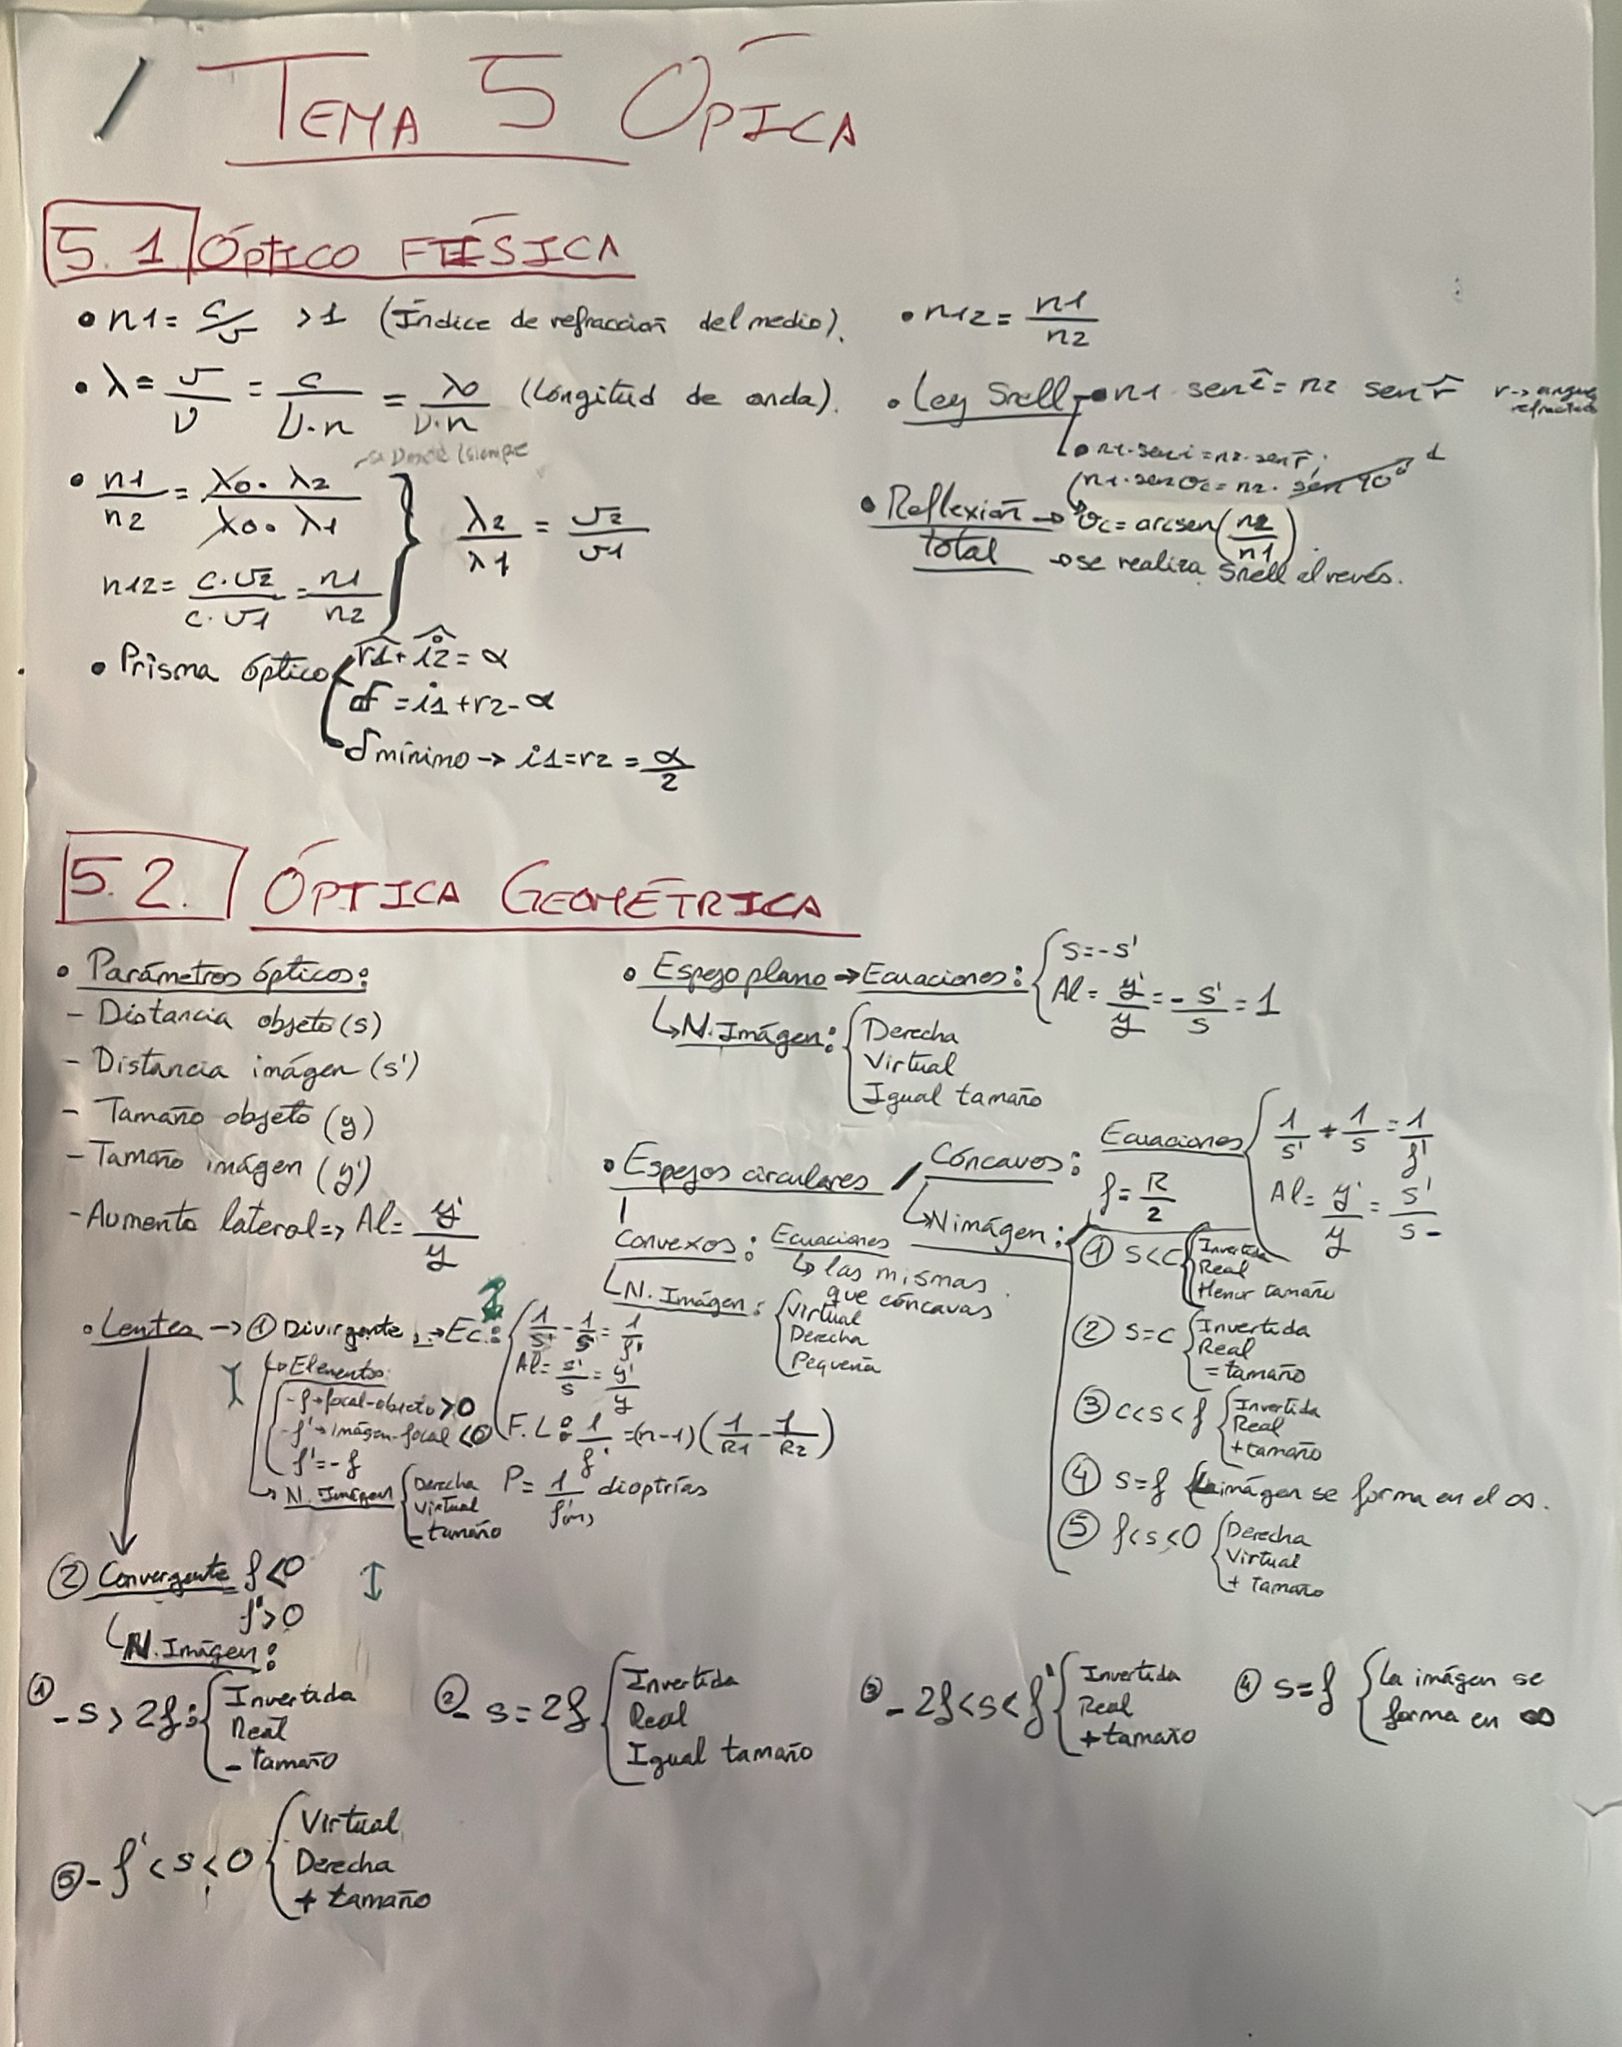 TEMA 5 ÓPICA
5.1 ÓPTICO FÍSICA
• n1 = c/v >1 (Índice de refraccion del medio).
• λ = v/ν = c/ν·n = λ0/ν·n (Longitud de onda).
• n1/n2 = λ0·λ2/λ0·λ1
n12 = c·v2/c·v1 = n1/n2
} λ2/λ1 = v2/v1
• Prisma óptico { r1+i2 = α
δ = i1+r2-α
δmínimo → i1=r2 = α/2
• n12 = n1/n2
• Ley Snell → n1 sen î = n2 sen r̂
n1·sen i = n2·sen r̂;
n1·sen θc = n2· sen 90º 1
• Reflexión total → θc = arcsen(n2/n1).
→ se realiza Snell al revés.
5.2. ÓPTICA GEOMÉTRICA
• Parámetros ópticos:
- Distancia objeto (s)
- Distancia imágen (s')
- Tamaño objeto (y)
- Tamaño imágen (y')
- Aumento lateral => Al = y'/y
• Espejo plano → Ecuaciones: { s=-s'
Al = y'/y = -s'/s = 1
↳ N. Imágen: { Derecha
Virtual
Igual tamaño
• Espejos circulares / Cóncavos: Ecuaciones { 1/s' + 1/s = 1/f'
f = R/2
Al = y'/y = s'/s -
↳ N imágen:
① s<c { Invertida
Real
Menor tamaño
② s=c { Invertida
Real
= tamaño
③ c<s<f { Invertida
Real
+tamaño
④ s=f { La imágen se forma en el ∞.
⑤ f<s<0 { Derecha
Virtual
+ tamaño
Convexos: Ecuaciones
↳ las mismas
que cóncavas
↳ N. Imágen: { Virtual
Derecha
Pequeña
• Lentes → ① Divirgente → Ec.: { 1/s' - 1/s = 1/f'
Al = s'/s = y'/y
F. L: 1/f' = (n-1)(1/R1 - 1/R2)
P = 1/f'(m) dioptrías
↳ Elementos:
- f → focal-objeto >0
- f' → imágen-focal <0
f' = -f
↳ N. Imágen { Derecha
Virtual
- tamaño
② Convergente f<0
f'>0
↳ N. Imágen:
① - s > 2f: { Invertida
Real
- tamaño
② - s = 2f { Invertida
Real
Igual tamaño
③ - 2f<s<f' { Invertida
Real
+tamaño
④ s=f { La imágen se
forma en ∞
⑤ - f' < s < 0 { Virtual
Derecha
+ tamaño